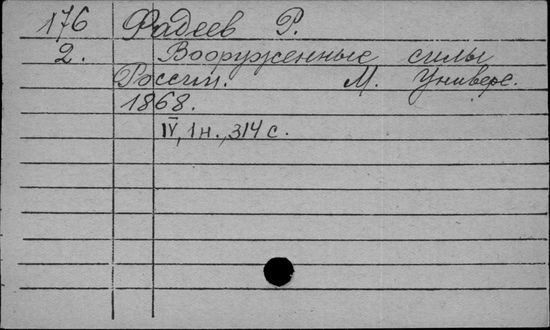 176 Фадеев Р.
2. Вооруженные силы
России. М. Универс.
1868.
IV, 1н., 314 с.